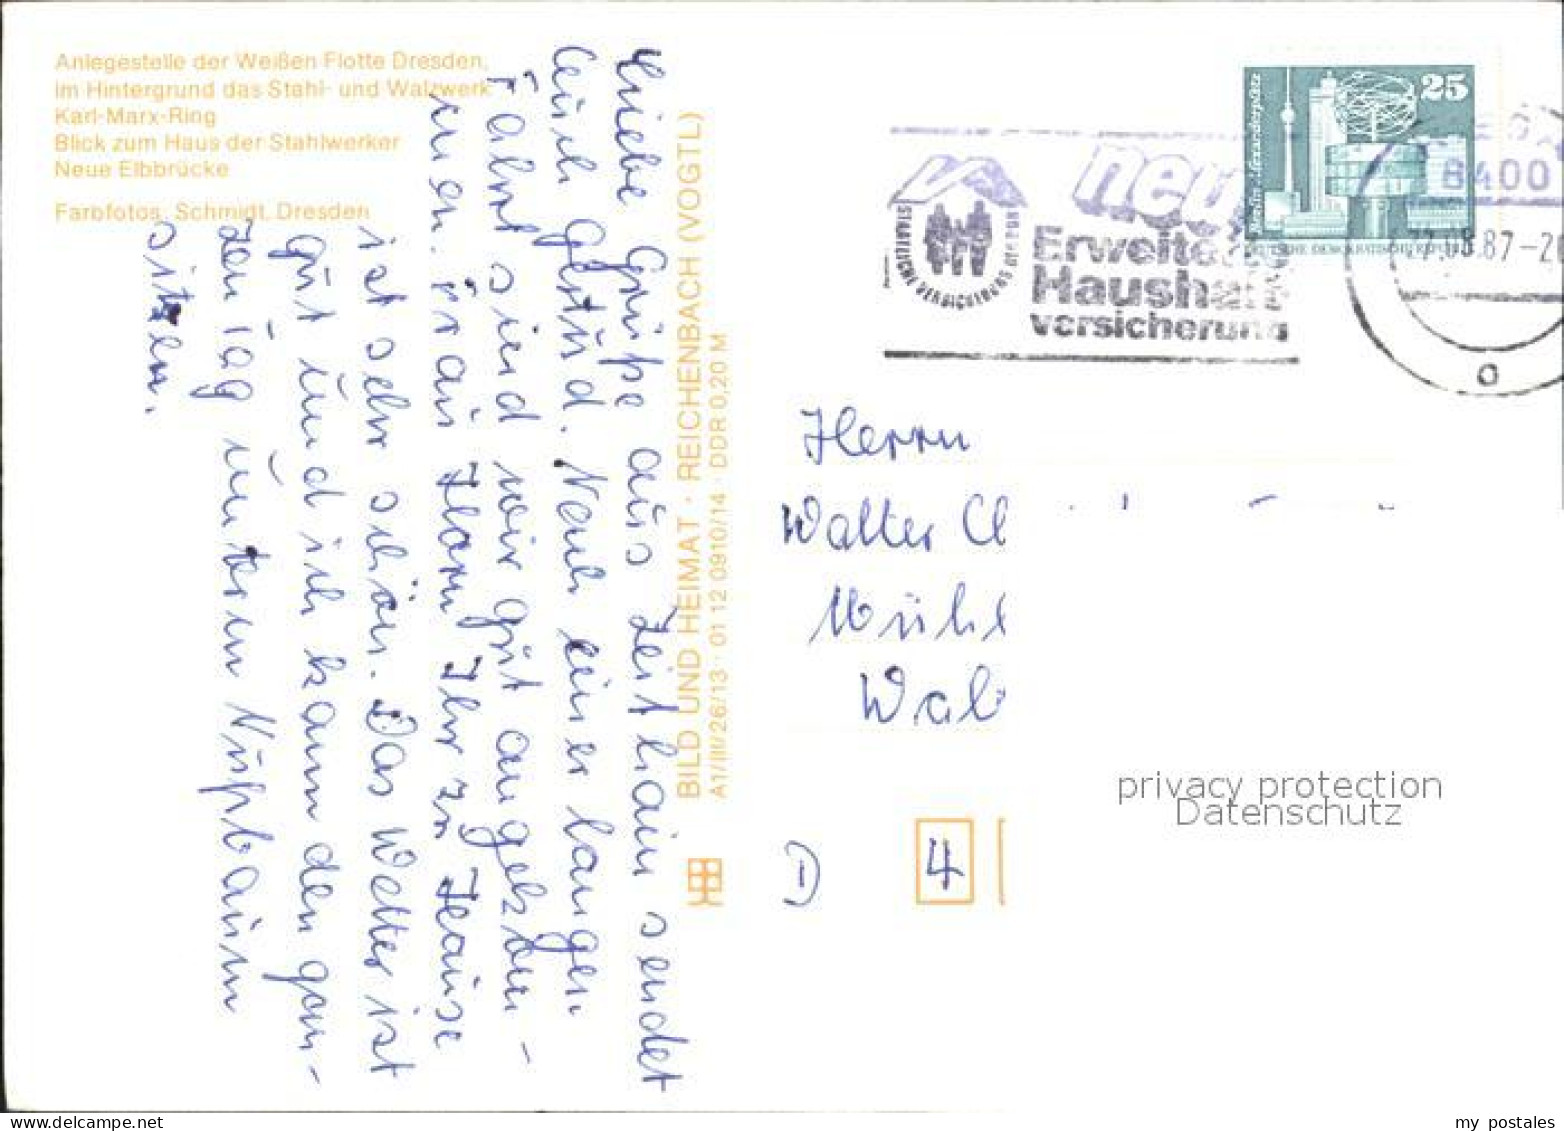 Anlegestelle der Weißen Flotte Dresden,
im Hintergrund das Stahl- und Walzwerk
Karl-Marx-Ring
Blick zum Haus der Stahlwerker
Neue Elbbrücke
Farbfotos: Schmidt, Dresden
Liebe Grüße aus Zeithain sendet
Euch Gertud. Nach einer langen
Fahrt sind wir gut angekom-
men.
Ihr zu Hause
ist sehr schön. Das Wetter ist
gut und ich kann den gan-
zen Tag unterm Nußbaum
sitzen.
BILD UND HEIMAT · REICHENBACH (VOGTL)
A1/III/26/13 · 01 12 0910/14 · DDR 0,20 M
25
Berlin, Alexanderplatz
DEUTSCHE DEMOKRATISCHE REPUBLIK
8400
87-2
STAATLICHE VERSICHERUNG DER DDR
neu
Erweite
Hausha
versicherung
Herrn
Walter
D
4
privacy protection
Datenschutz
my postales